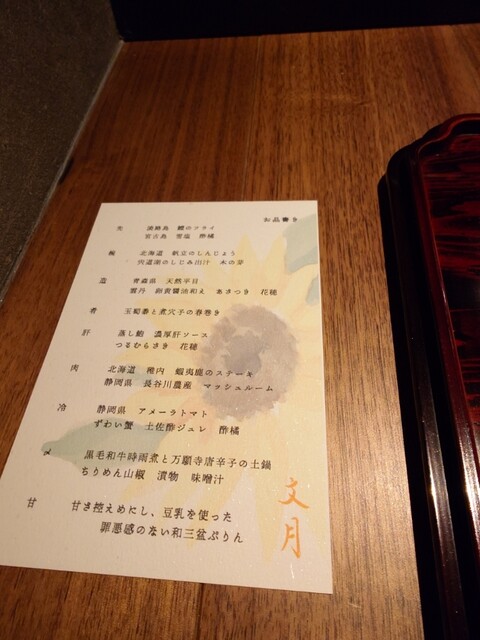 お品書き
先 淡路島 鱧のフライ
宮古島 雪塩 酢橘
椀 北海道 帆立のしんじょう
宍道湖のしじみ出汁 木の芽
造 青森県 天然平目
雲丹 卵黄醤油和え あさつき 花穂
肴 玉蜀黍と煮穴子の春巻き
肝 蒸し鮑 濃厚肝ソース
つるむらさき 花穂
肉 北海道 稚内 蝦夷鹿のステーキ
静岡県 長谷川農産 マッシュルーム
冷 静岡県 アメーラトマト
ずわい蟹 土佐酢ジュレ 酢橘
〆 黒毛和牛時雨煮と万願寺唐辛子の土鍋
ちりめん山椒 漬物 味噌汁
甘 甘さ控えめにし、豆乳を使った
罪悪感のない和三盆ぷりん
文月